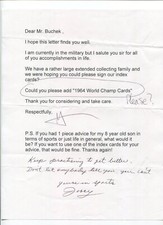 Dear Mr. Buchek,
I hope this letter finds you well.
I am currently in the military but I salute you sir for all
of you accomplishments in life.
We have a rather large extended collecting family and
we were hoping you could please sign our index
cards?
Could you please add "1964 World Champ Cards"
Please?
Thank you for considering and take care.
Respectfully,
P.S. If you had 1 piece advice for my 8 year old son in
terms of sports or just life in general, what would it
be? If you want to use one of the index cards for your
advice, that would be fine. Thanks again!
Keep practicing to get better.
Don't let anybody tell you you can't
yours in sports